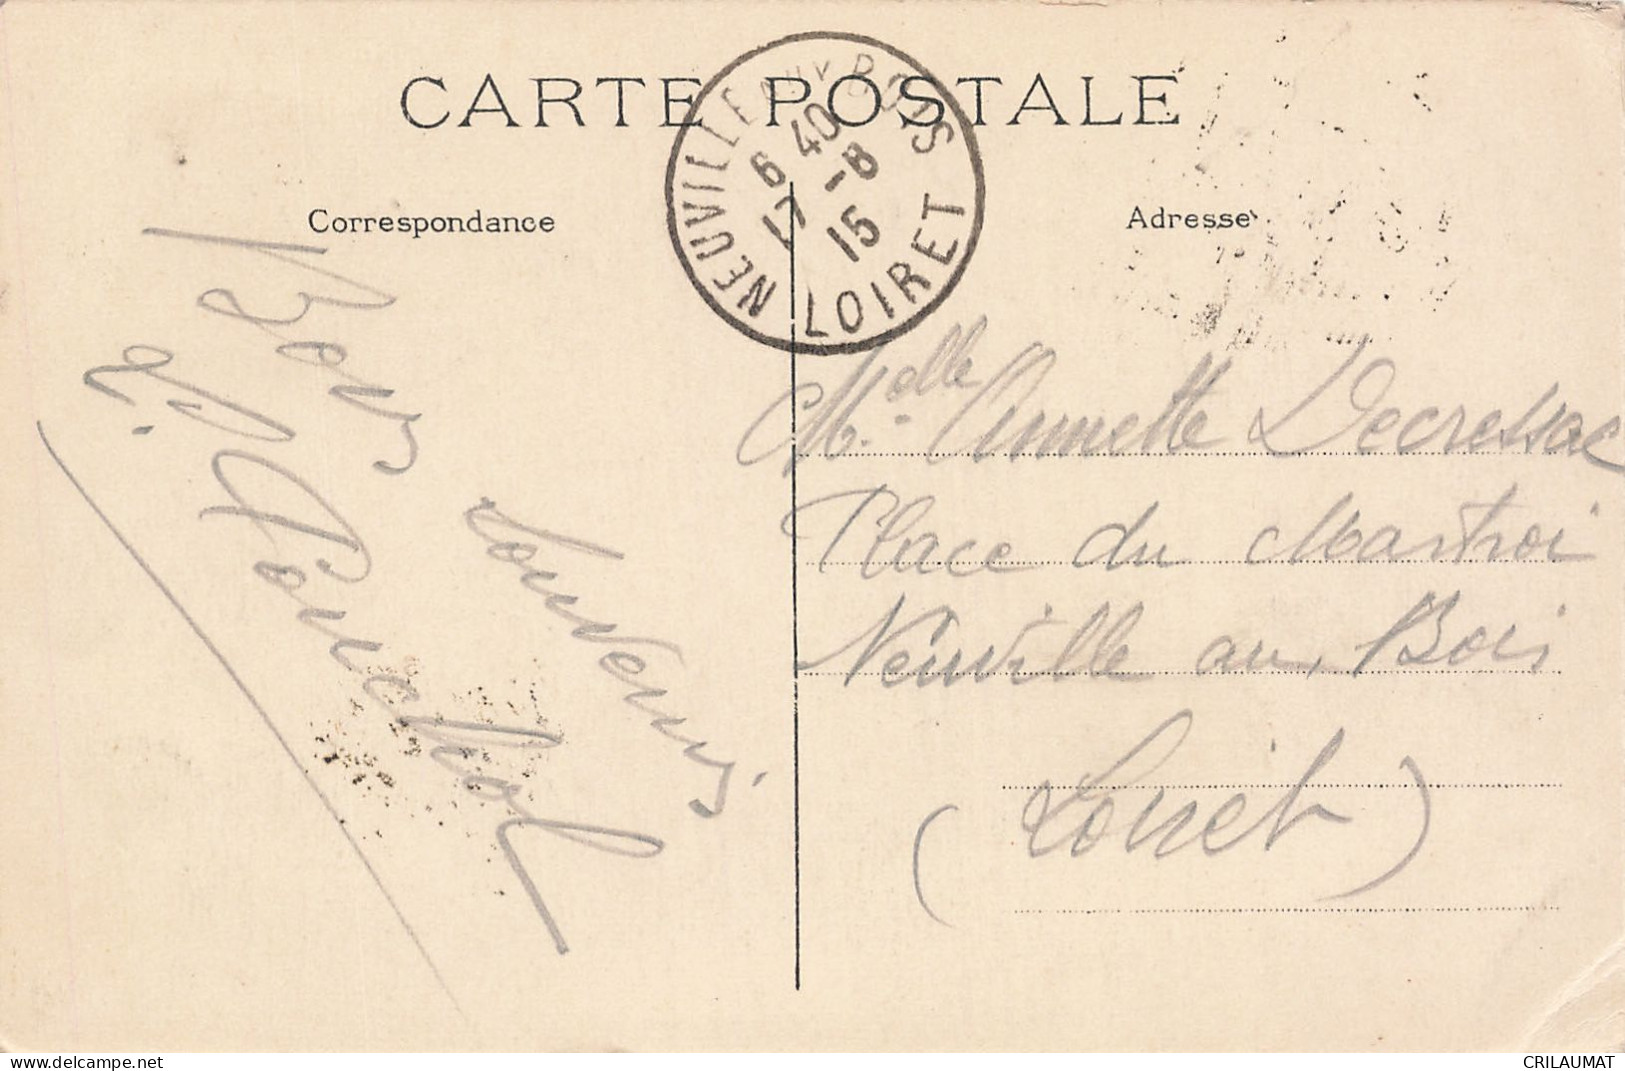 CARTE POSTALE
NEUVILLE AUX BOIS
6 40
17 -8
15
LOIRET
Correspondance
Adresse
Bons Souvenirs
Melle Annette Decressac
Place du Martroi
Neuville aux Bois
(Loiret)
www.delcampe.net
CRILAUMAT